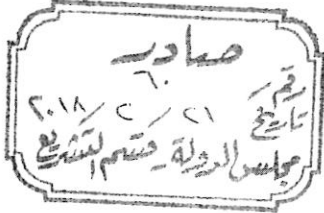 صادر
رقم ٦٠
تاريخ ٢١ / ٢ / ٢٠١٨
مجلس الدولة - قسم التشريع